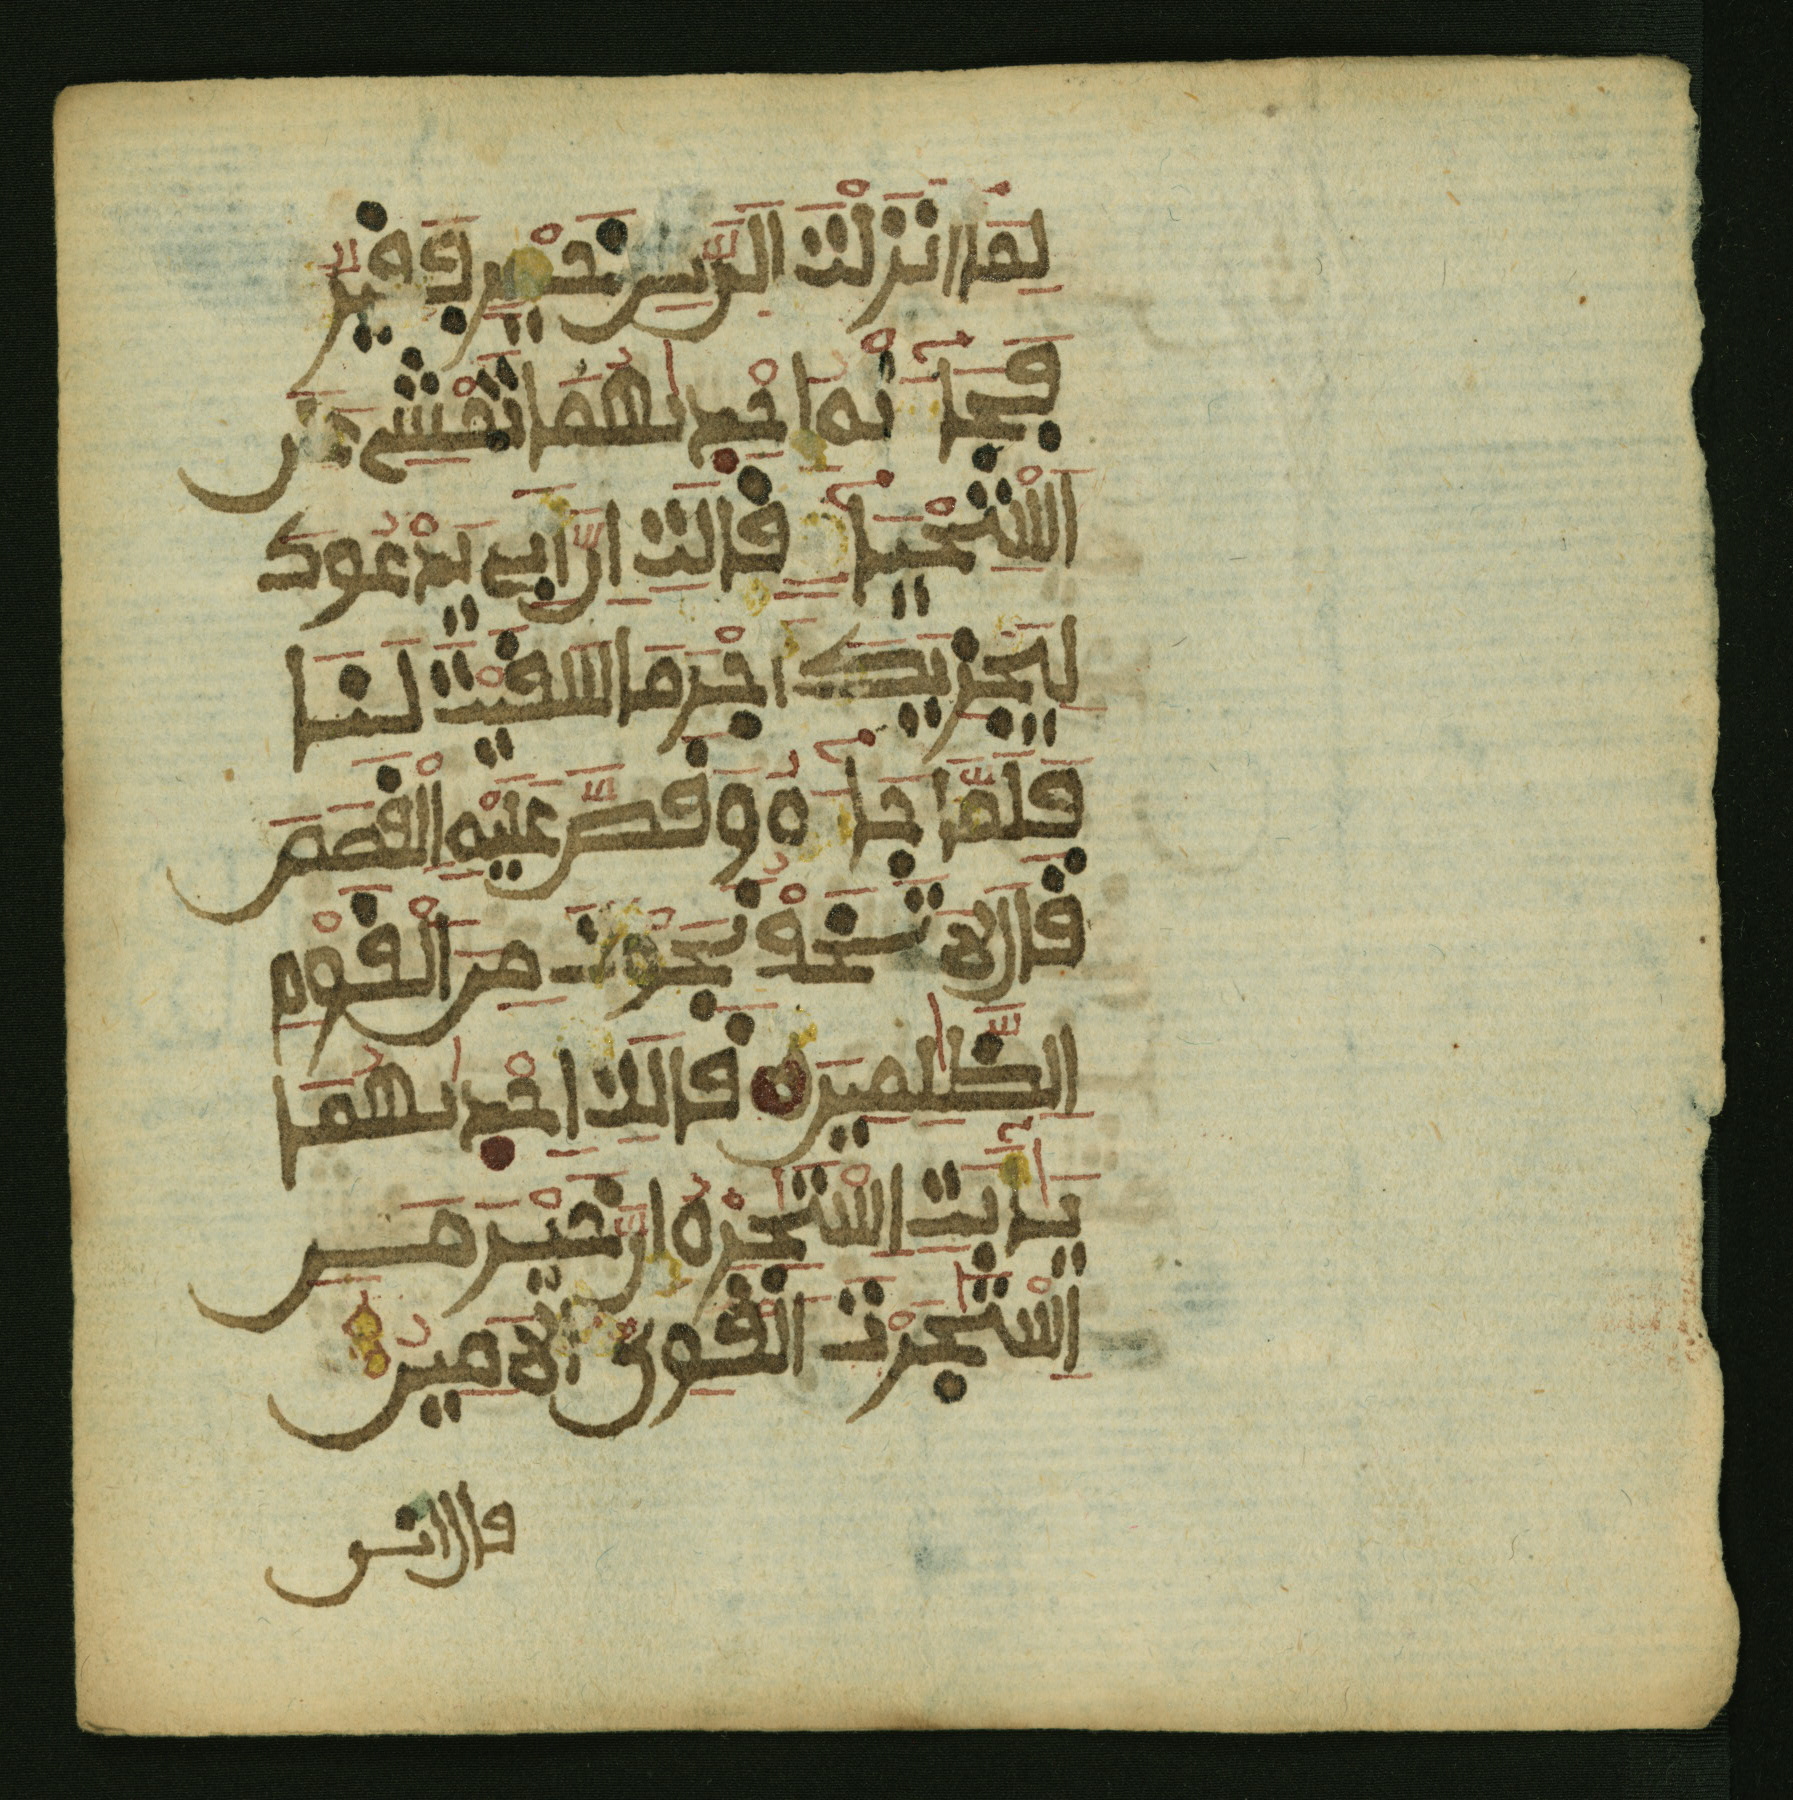 لِمَا أَنزَلْتَ إِلَىَّ مِنْ خَيْرٍ فَقِيرٌ
فَجَآءَتْهُ إِحْدَىٰهُمَا تَمْشِے عَلَى
اَسْتِحْيَآءٍ قَالَتِ اِنَّ أَبِے يَدْعُوكَ
لِيَجْزِيَكَ أَجْرَ مَا سَقَيْتَ لَنَا
فَلَمَّا جَآءَهُۥ وَقَصَّ عَلَيْهِ اِلْقَصَصَ
قَالَ لَا تَخَفْ نَجَوْتَ مِنَ اَلْقَوْمِ
اِلظَّٰلِمِينَ قَالَتِ اِحْدَىٰهُمَا
يَٰٓأَبَتِ اِسْتَٰٔجِرْهُ إِنَّ خَيْرَ مَنِ
اِسْتَٰٔجَرْتَ اَلْقَوِىُّ اُلَامِينُ
قال انى